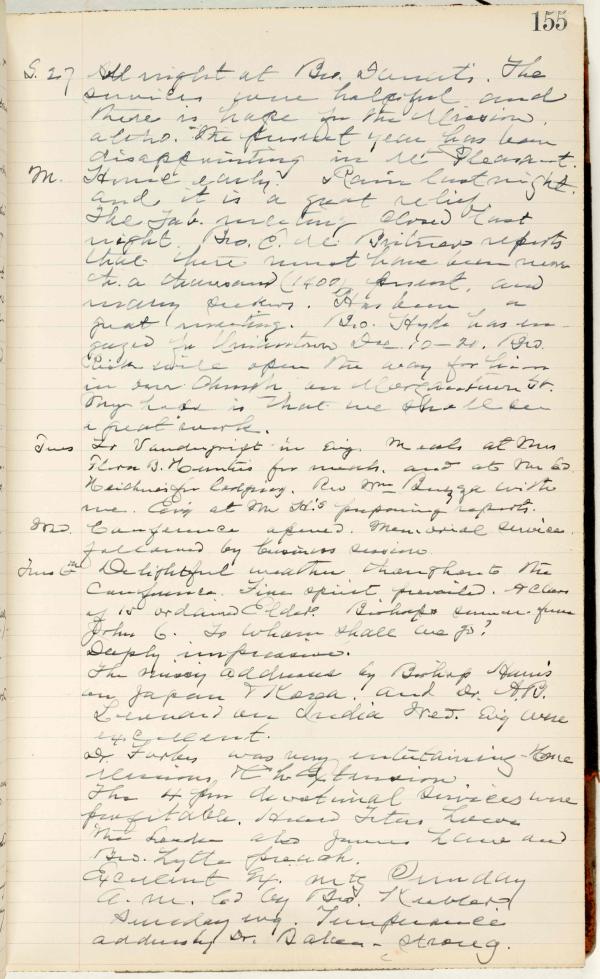 155
S. 27 All night at Bro. The
services were helpful and
there is hope for the Mission
altho. The present year has been
disappointing in Mt Pleasant.
M. Home early. Rain last night.
and it is a great relief.
The Tab. meeting closed last
night. Bro. C. M. reports
that there must have been more
th. a thousand (1400) present, and
many seekers. Has been a
great meeting. Bro. Hyde has en-
gaged for Uniontown Dec. 10-20. Bro.
will open the way for him
in our Church on Morgantown St.
My hope is that we shall see
a great work.
Tues To Vandergrift in Evg. Meals at Mrs
Flora B. for meals, and at Mr Ed.
for lodging. Rev Wm with
me. Evg at Mr H's preparing reports.
Wed. Conference opened. Memorial service
followed by business session.
Delightful weather throughout the
Conference. Fine spirit prevailed. A Class
of 15 ordained Elders. Bishop's sermon from
John 6. To whom shall we go?
Deeply impressive.
The addresses by Bishop Harris
on Japan & Korea, and Dr. A.B.
Leonard on India Wed. Evg were
excellent.
Dr. Forbes was very entertaining Home
Missions & Ch Extension
The 4 pm devotional services were
profitable. Heard Titus Lowe
the leader also James and
Bro. Lytle preach.
Excellent Ex. mtg Sunday
a.m. led by Bro.
Sunday evg. Temperance
address by Dr. Baker - strong.